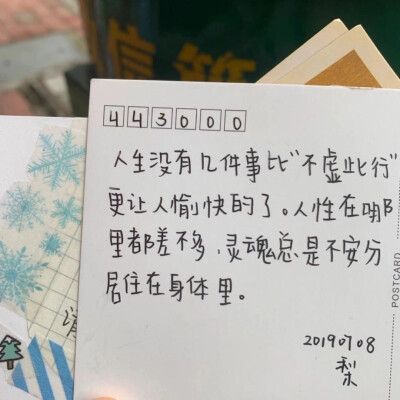 信箱
443000
人生没有几件事比“不虚此行”
更让人愉快的了。人性在哪
里都差不多，灵魂总是不安分
居住在身体里。
20190708
梨
POSTCARD